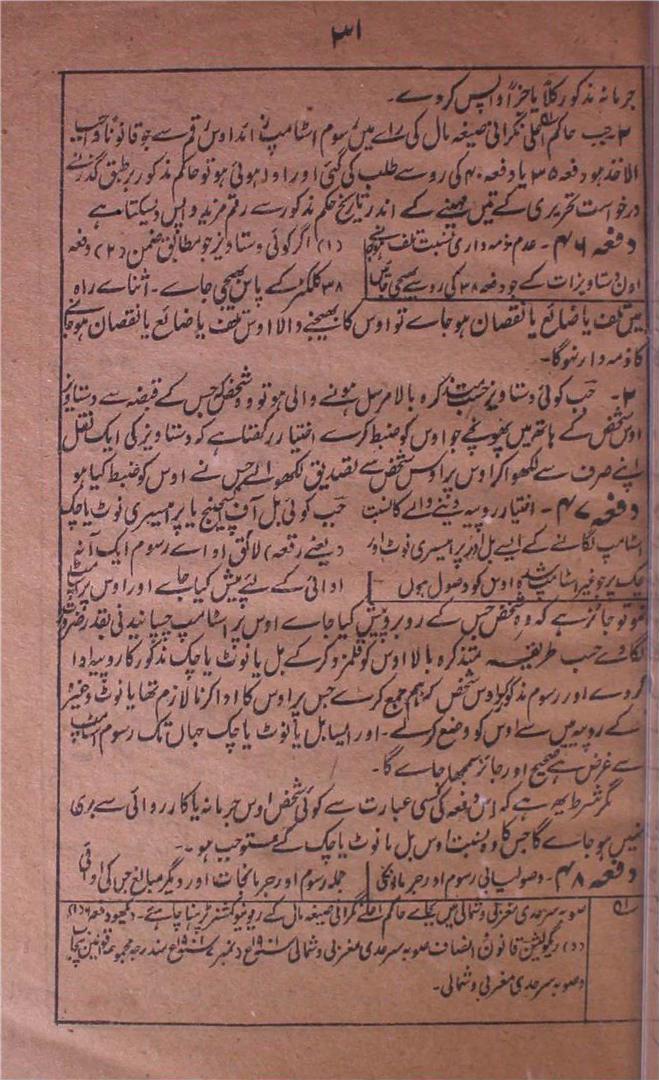 ۳۱
جرمانہ مذکور کلاً یا جزاً واپس کردے۔
۲۔ جب حاکم اعلی نگرانی صیغہ مال کی راے میں رسوم اسٹامپ زائد اوس رقم سے جو قانوناً واجب
الاخذ ہو دفعہ ۳۵ یا دفعہ ۴۰ کی رو سے طلب کی گئی اور ادا ہوئی ہو تو حاکم مذکور برطبق گذرنے
درخواست تحریری کے تین مہینے کے اندر تاریخ حکم مذکور سے رقم مزید واپس دیسکتا ہے
دفعہ ۴۶۔ عدم ذمہ داری نسبت تلف ہوجانے
اون دستاویزات کے جو دفعہ ۳۸ کی رو سے بھیجی جائیں
(۱) اگر کوئی دستاویز جو مطابق ضمن (۲) دفعہ
۳۸ کلکٹر کے پاس بھیجی جاے۔ اثناے راہ
میں تلف یا ضائع یا نقصان ہوجاے تو اوس کا بھیجنے والا اوس تلف یا ضائع یا نقصان ہوجانے
کا ذمہ دار نہوگا۔
۲۔ جب کوئی دستاویز حسب متذکرہ بالا مرسل ہونے والی ہو تو وہ شخص جس کے قبضہ سے دستاویز
اوس شخص کے ہاتھ میں پہونچے جو اوس کو ضبط کرے اختیار رکھتا ہے کہ دستاویز کی ایک نقل
اپنے صرف سے لکھوا کر اوس پر اوس شخص سے تصدیق لکھوالے جس نے اوس کو ضبط کیا ہو
دفعہ ۴۷۔ اختیار روپیہ دینے والے کا نسبت
اسٹامپ لگانے کے ایسے بل اور پرامیسری نوٹ اور
چک پر جو بغیر اسٹامپ شدہ اوس کو وصول ہوں
جب کوئی بل آف ایکسچینج یا پرامیسری نوٹ یا چک
(یعنے رقعہ) لائق اداے رسوم ایک آنہ
ادائی کے لئے پیش کیا جاے اور اوس پر اسٹامپ
نہو تو جائز ہے کہ وہ شخص جس کے روبرو پیش کیا جاے اوس پر اسٹامپ چسپانیدنی بقدر ضرورت
لگاوے حسب طریقہ متذکرہ بالا اوس کو قلمزد کرکے بل یا نوٹ یا چک مذکور کا روپیہ ادا
کردے اور رسوم مذکور اوس شخص کے نام جمع کرے جس پر اوس کا ادا کرنا لازم تھا یا نوٹ وغیرہ
کے روپیہ میں سے اوس کو وضع کرلے۔ اور ایسا بل یا نوٹ یا چک جہاں تک رسوم اسٹامپ
سے غرض ہے صحیح اور جائز سمجھا جاے گا۔
مگر شرط یہ ہے کہ اس دفعہ کی کسی عبارت سے کوئی شخص اوس جرمانہ یا کارروائی سے بری
نہیں ہوجاے گا جس کا وہ بنسبت اوس بل یا نوٹ یا چک کے مستوجب ہو۔
دفعہ ۴۸۔ وصولیابی رسوم اور جرمانوں کی
جملہ رسوم اور جرمانجات اور دیگر مبالغ جس کی ادائی
صوبہ سرحدی مغربی و شمالی میں بجاے حاکم اعلے نگرانی صیغہ مال کے ریونیو کمشنر پڑھنا چاہئے۔ دیکھو دفعہ ۶ (۱)
(د) ریگولیشن قانون انصاف صوبہ سرحدی مغربی و شمالی ۱۹۰۱ء مندرجہ مجموعہ قوانین پنجاب
و صوبہ سرحدی مغربی و شمالی۔